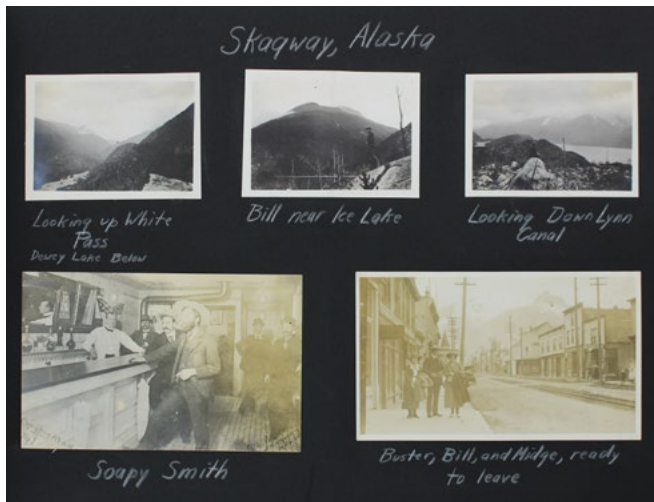 Skagway, Alaska
Looking up White
Pass
Dewey Lake Below
Bill near Ice Lake
Looking Down Lynn
Canal
Soapy Smith
Buster, Bill, and Midge, ready
to leave